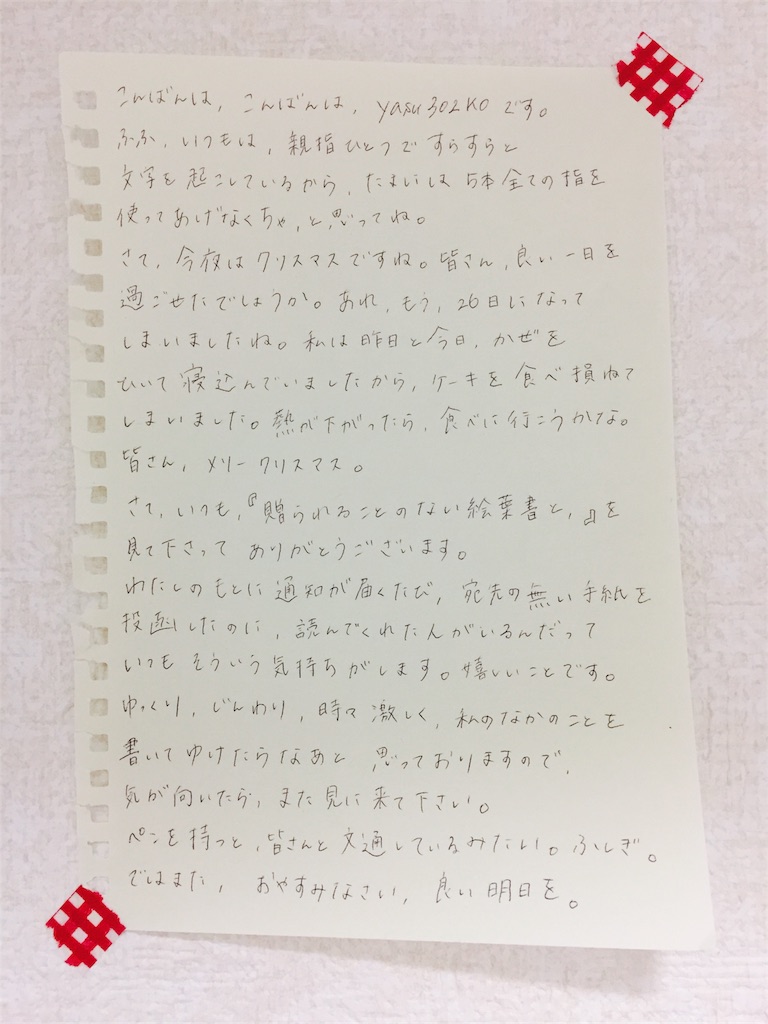 こんばんは, こんばんは, yasu302KO です。
ふふ, いつもは, 親指ひとつですらすらと
文字を起こしているから, たまには 5本全ての指を
使ってあげなくちゃ, と思ってね。
さて, 今夜はクリスマスですね。皆さん, 良い一日を
過ごせたでしょうか。あれ, もう, 26日になって
しまいましたね。私は昨日と今日, かぜを
ひいて寝込んでいましたから, ケーキを食べ損ねて
しまいました。熱が下がったら, 食べに行こうかな。
皆さん, メリークリスマス。
さて, いつも,『贈られることのない絵葉書と, 』を
見て下さって ありがとうございます。
わたしのもとに通知が届くたび, 宛先の無い手紙を
投函したのに, 読んでくれた人がいるんだって
いつも そういう気持ちがします。嬉しいことです。
ゆっくり, じんわり, 時々激しく, 私のなかのことを
書いてゆけたらなあと 思っておりますので,
気が向いたら, また見に来て下さい。
ペンを持つと, 皆さんと文通しているみたい。ふしぎ。
ではまた, おやすみなさい, 良い明日を。